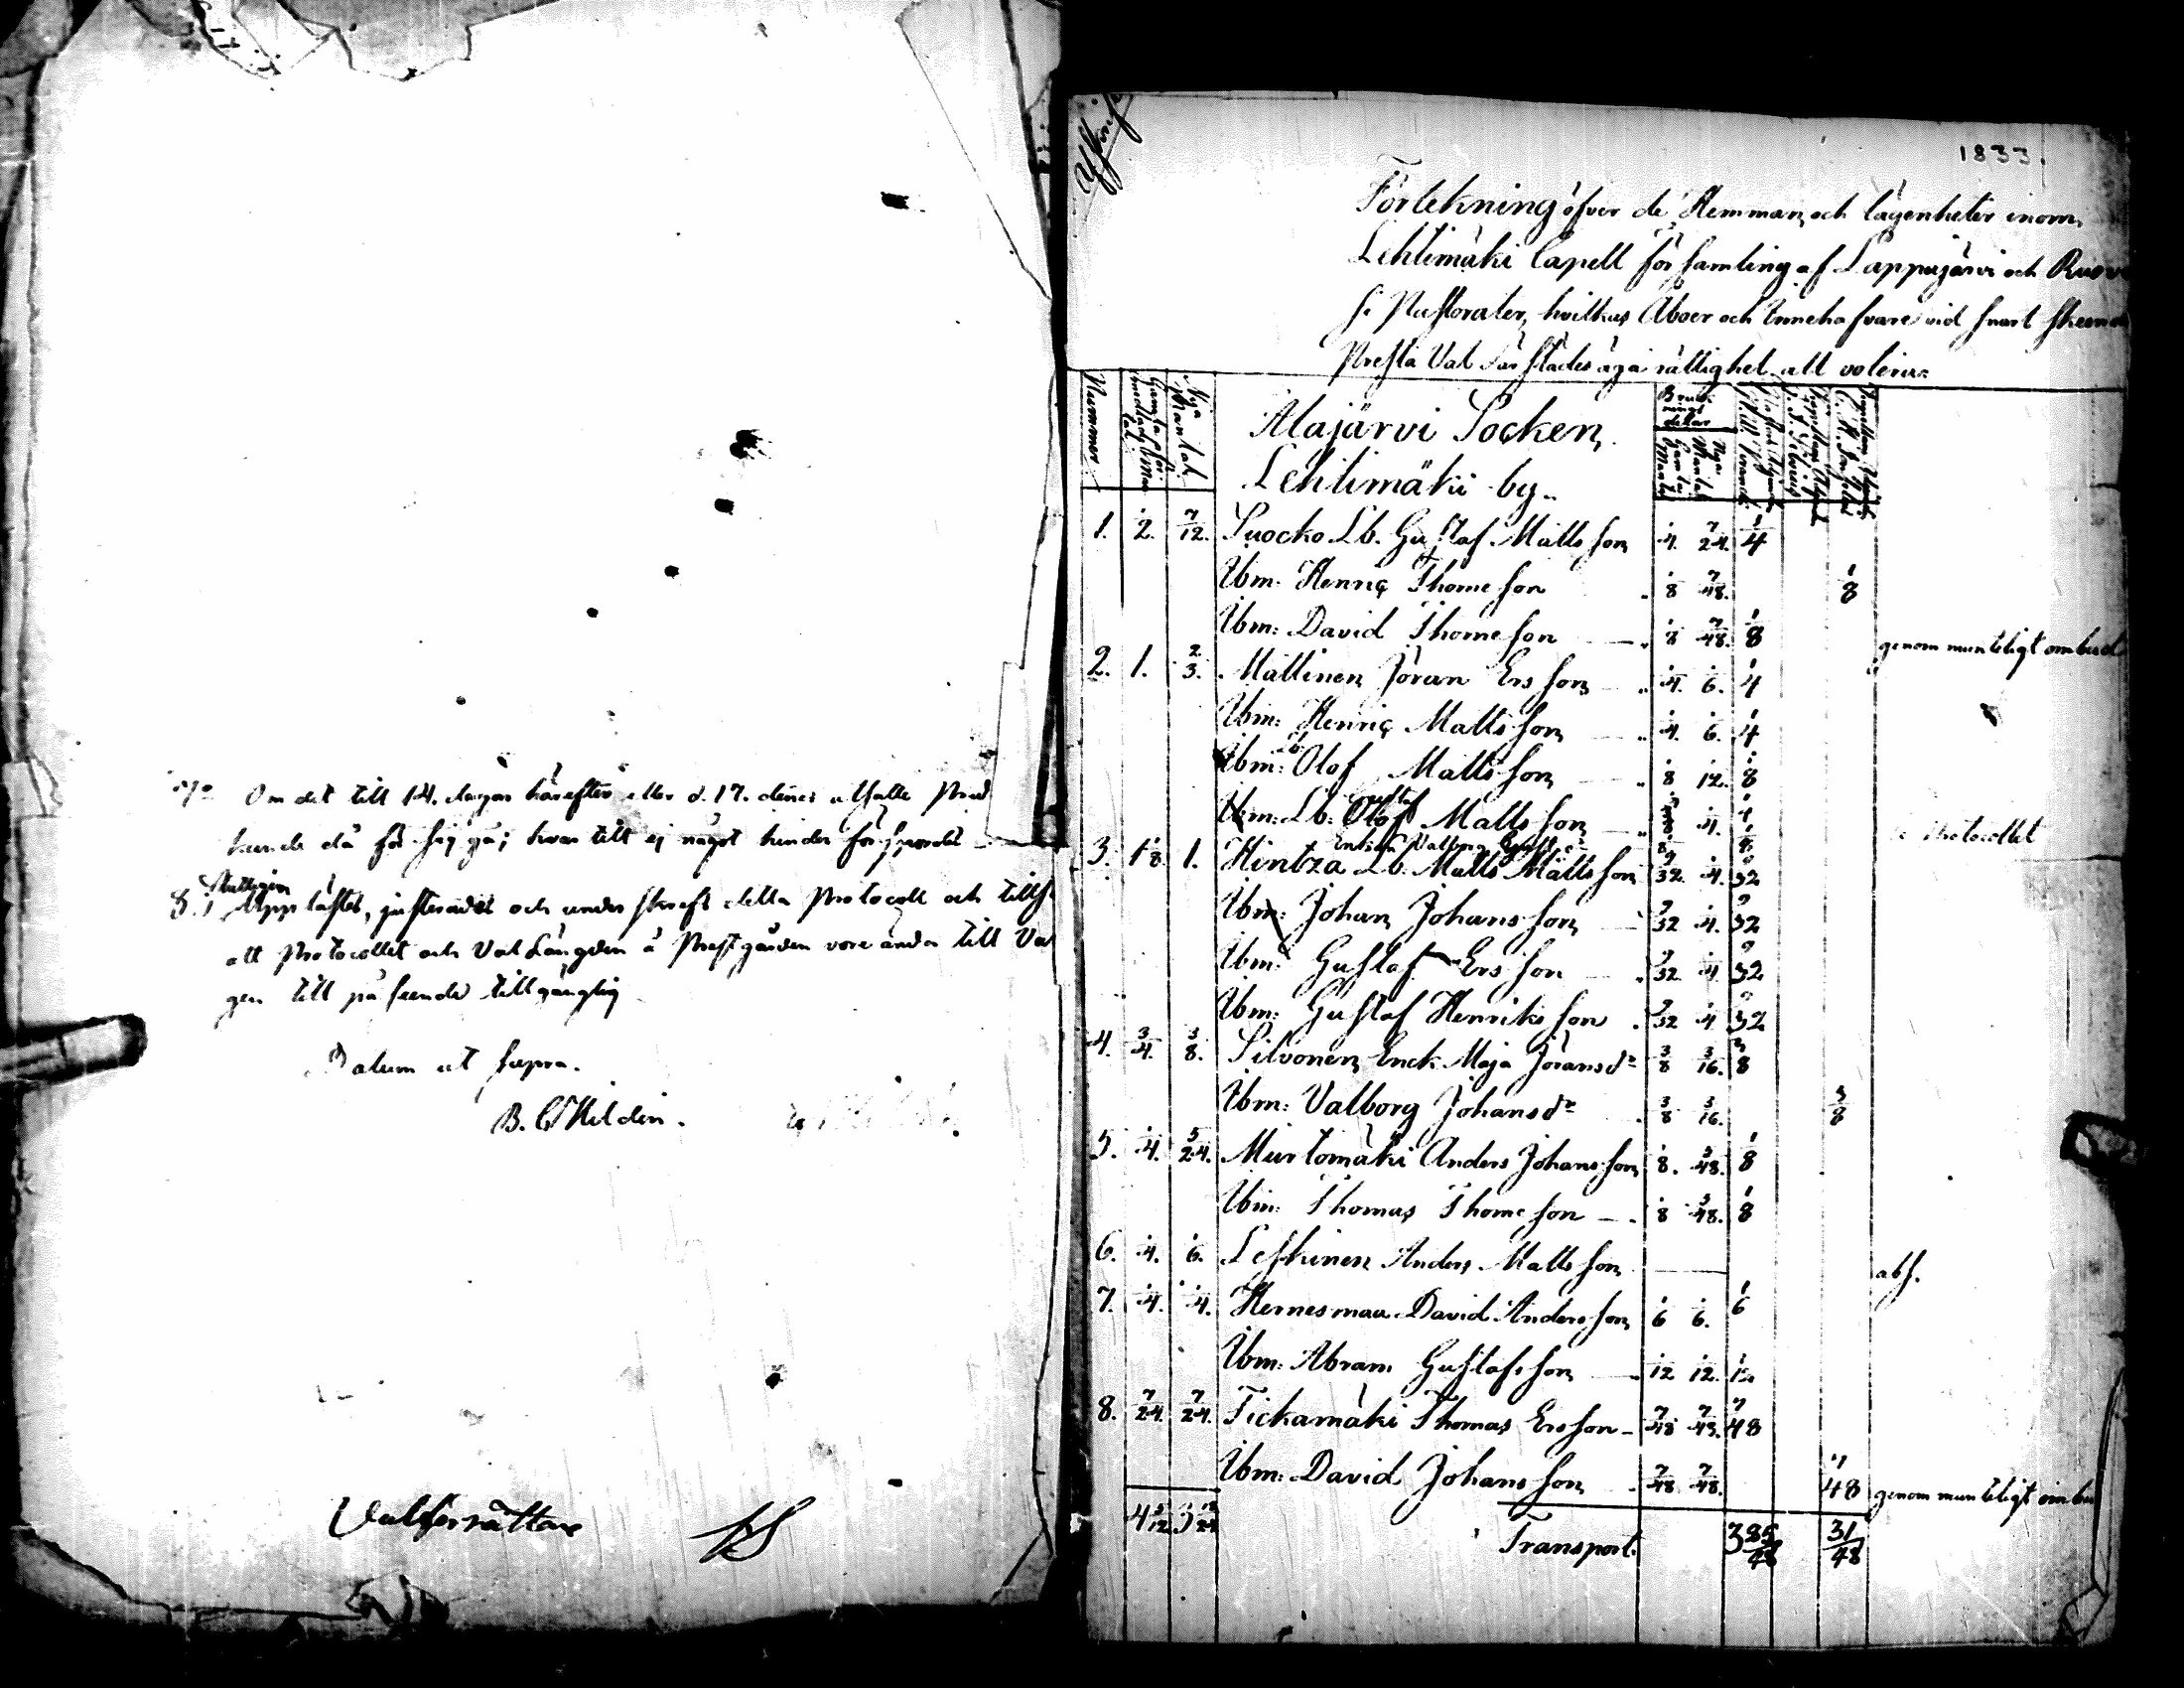 Om det till 14. dagar härefter eller d. 17. denes utsatte Prof
kunde då för sig gå; hvar till ej något hinder försports
8. § Slutligen Upplästes, justerades och underskrefs detta Protocoll och tills.
att Protocollet och Val Längden å Prestgården vore ända till Va
gen till påseende tillgänglig
Datum ut supra.
B. C. Hildén.
Valförrättare
LS
1833.
Förtekning öfver de Hemman och lägenheter inom
Lehtimäki Capell församling af Lappajärvi och Ruove
si Pastorater, hvilkas Åboer och Innehafvare vid snart skeende
Presta Val därstädes äga rättighet att votera.
Nummer
Nya Mantal
Alajärvi Socken
Lehtimäki by
Gamla Mantal
Nya Mantal
1. 2. 7/12. Suocko Lb. Gustaf Mattsson 1/4. 7/24. 1/4
Ibm: Henric Thomeson 1/8 7/48. 1/8
Ibm: David Thomeson 1/8 7/48. 1/8 genom munteligt ombud
2. 1. 2/3. Mattinen Jöran Ersson 1/4. 1/6. 1/4
Ibm: Henric Mattsson 1/4. 1/6. 1/4
Ibm: Lb Olof Mattsson 1/8 1/12. 1/8
Ibm: Lb: Olof Gustaf Mattsson 1/4. Protocollet
Enkan Valborg
3. 1 1/8. 1. Hintza Lb. Matts Mattsson 9/32. 1/4. 9/32
Ibm: Johan Johansson 9/32 1/4. 9/32
Ibm: Gustaf Ersson 9/32 1/4. 9/32
Ibm: Gustaf Henriksson 9/32 1/4. 9/32
4. 3/4. 3/8. Silvonen Enck. Maja Joransdr 3/8 3/16. 3/8
Ibm: Valborg Johansdr 3/8 3/16. 3/8
5. 1/4. 5/24. Murtomäki Anders Johansson 1/8. 5/48. 1/8
Ibm: Thomas Thomeson 1/8 5/48. 1/8
6. 1/4. 1/6. Leskinen Anders Mattsson abs.
7. 1/4. 1/4. Hernesmaa David Andersson 1/6 1/6. 1/6
Ibm: Abram Gustafsson 1/12 1/12. 1/12
8. 7/24. 7/24. Tickamäki Thomas Ersson 7/48 7/48. 7/48
Ibm: David Johansson 7/48. 7/48. 7/48 genom munteligt ombu
4 5/12 3 13/24
Transport. 3 85/48 31/48